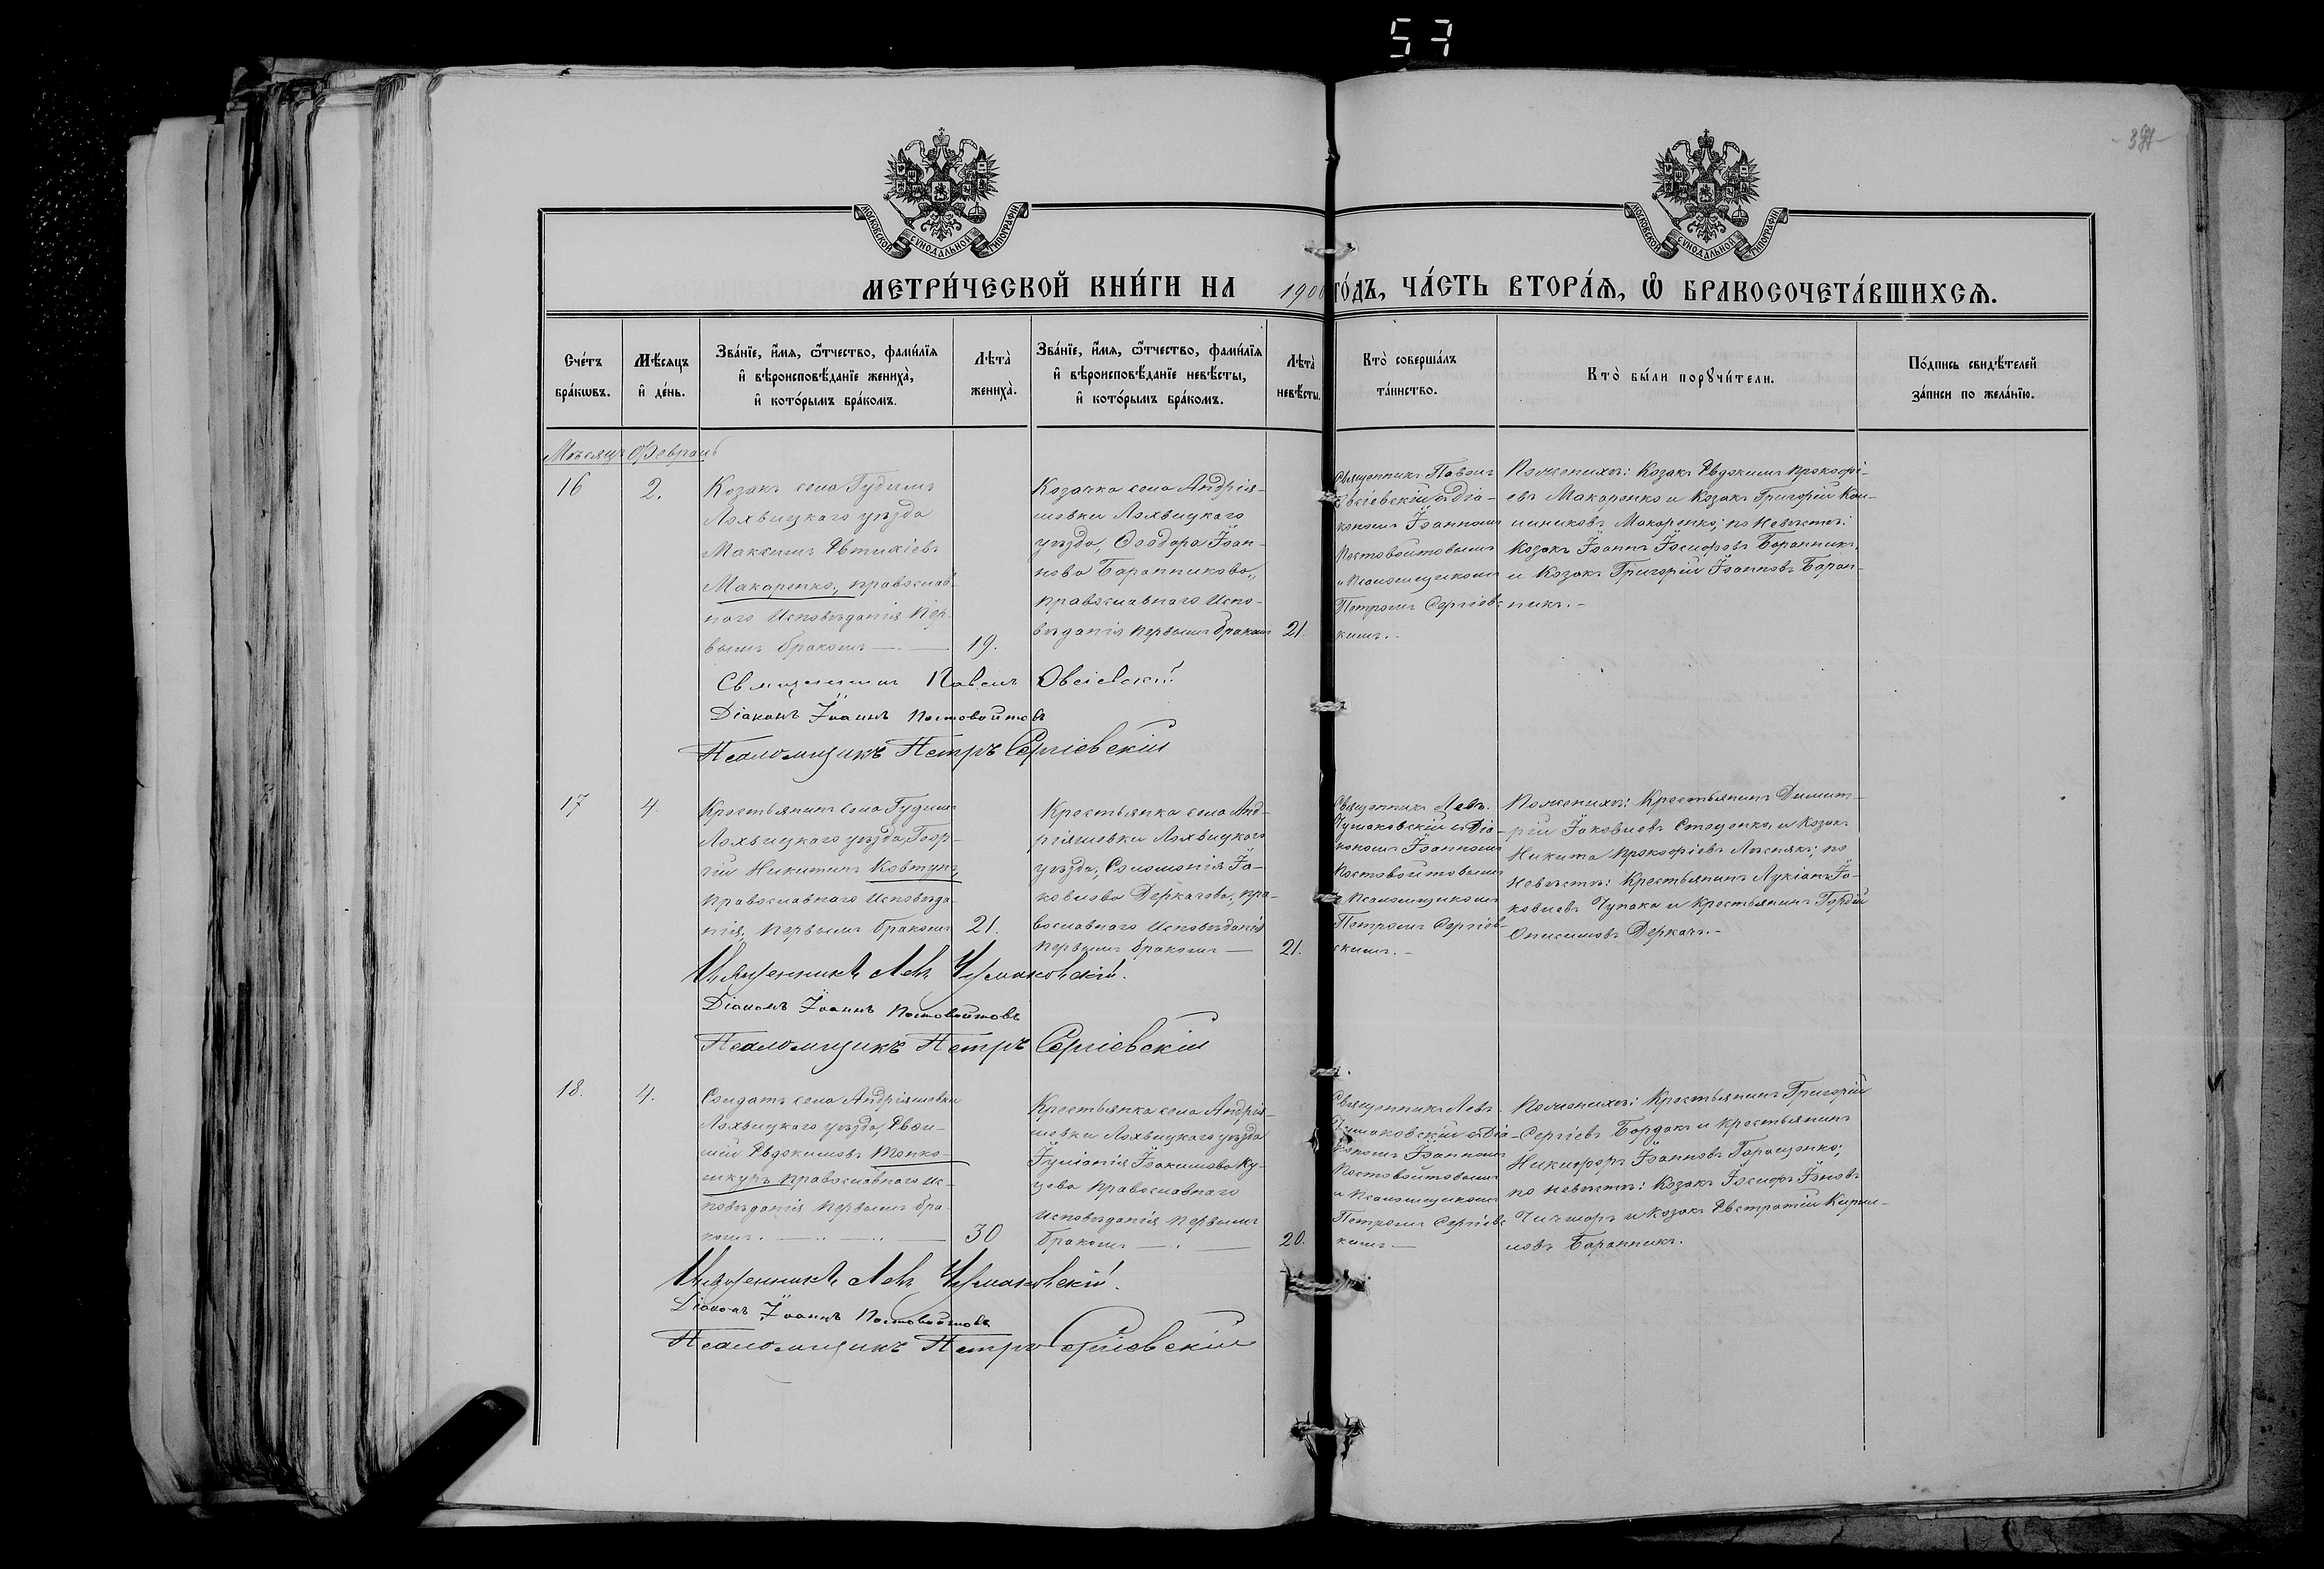 57
МОСКОВСКОЙ СѴНОДАЛЬНОЙ ТИПОГРАФІИ
МОСКОВСКОЙ СѴНОДАЛЬНОЙ ТИПОГРАФІИ
МЕТРИ́ЧЕСКОЙ КНИ́ГИ НА 190 ГО́ДЪ, ЧА́СТЬ ВТОРА́Ѧ, Ѽ БРАКОСОЧЕТА́ВШИХСѦ.
Сче́тъ
бра́кѡвъ.
Мѣ́сяцъ
и҆ де́нь.
Зва́нїе, и҆́мѧ, ѻ҆́тчество, фамі́лїѧ
и҆ вѣроисповѣ́данїе жениха̀,
и҆ кото́рымъ бра́комъ.
Лѣта̀
жениха̀.
Зва́нїе, и҆́мѧ, ѻ҆́тчество, фамі́лїѧ
и҆ вѣроисповѣ́данїе невѣ́сты,
и҆ кото́рымъ бра́комъ.
Лѣта̀
невѣ́сты.
Кто̀ соверша́лъ
та́инство.
Кто̀ бы́ли порꙋчи́тели.
По́дпись свидѣ́телей
за́писи по жела́нїю.
Мѣсяцъ Февраль
16
2.
Козакъ села Гудимъ
Лохвицкаго уѣзда
Максимъ Евтихіевъ
Макаренко, православ-
наго Исповѣданія Пер-
вымъ бракомъ
19.
Козачка села Андрія-
шовки Лохвицкаго
уѣзда, Ѳеодора Іоан-
нова Баранникова,
православнаго Испо-
вѣданія первымъ бракомъ
21.
Священникъ Павелъ
Овсіевскій съ Діа-
кономъ Іоанномъ
Постовойтовымъ
и Псаломщикомъ
Петромъ Сергіевс
кимъ.-
По женихѣ: Козакъ Евдокимъ Прокофі-
евъ Макаренко и Козакъ Григорій
Макаренко; по Невѣстѣ:
Козакъ Іоаннъ Іосифовъ Баранникъ,
и Козакъ Григорій Іоанновъ Баран-
никъ.-
Священникъ Павелъ Овсіевскій
Діаконъ Іоаннъ Постовойтовъ
Псаломщикъ Петръ Сергіевскій
17
4
Крестьянинъ села Гудимъ
Лохвицкаго уѣзда, Геор-
гій Никитинъ Ковтунъ,
православнаго Исповѣда-
нія, Первымъ бракомъ
21.
Крестьянка села Анд-
ріяшевки Лохвицкаго
уѣзда, Соломонія Іа-
ковлева Деркачова, пра-
вославнаго Исповѣданія
первымъ бракомъ
21.
Священникъ Левъ
Чумаковскій съ Діа-
кономъ Іоанномъ
Постовойтовымъ
и Псаломщикомъ
Петромъ Сергіев-
скимъ.-
По женихѣ: Крестьянинъ Димит-
рій Іаковлевъ Стеценко, и Козакъ
Никита Прокофіевъ Лѣснякъ; по
Невѣстѣ: Крестьянинъ Лукіанъ Іа-
ковлевъ Чупака и Крестьянинъ Гордій
Онисимовъ Деркачъ.-
Священникъ Левъ Чумаковскій.
Діаконъ Іоаннъ Постовойтовъ
Псаломщикъ Петръ Сергіевскій
18.
4.
Солдатъ села Андріяшовки
Лохвицкаго уѣзда,
Евдокимовъ Тонко-
шкуръ православнаго Ис-
повѣданія Первымъ бра-
комъ.
30
Крестьянка села Андрія-
шевки Лохвицкаго уѣзда
Іуліанія Іоакимова Ку-
цева Православнаго
Исповѣданія первымъ
бракомъ
20.
Священникъ Левъ
Чумаковскій съ Діа-
кономъ Іоанномъ
Постовойтовымъ
и Псаломщикомъ
Петромъ Сергіевс
кимъ
По женихѣ: Крестьянинъ Григорій
Сергіевъ Бардакъ и Крестьянинъ
Никифоръ Іоанновъ Геращенко;
по невѣстѣ: Козакъ Іосифъ
и Козакъ Евстратій Кирил-
ловъ Баранникъ.
Священникъ Левъ Чумаковскій.
Діаконъ Іоаннъ Постовойтовъ
Псаломщикъ Петръ Сергіевскій